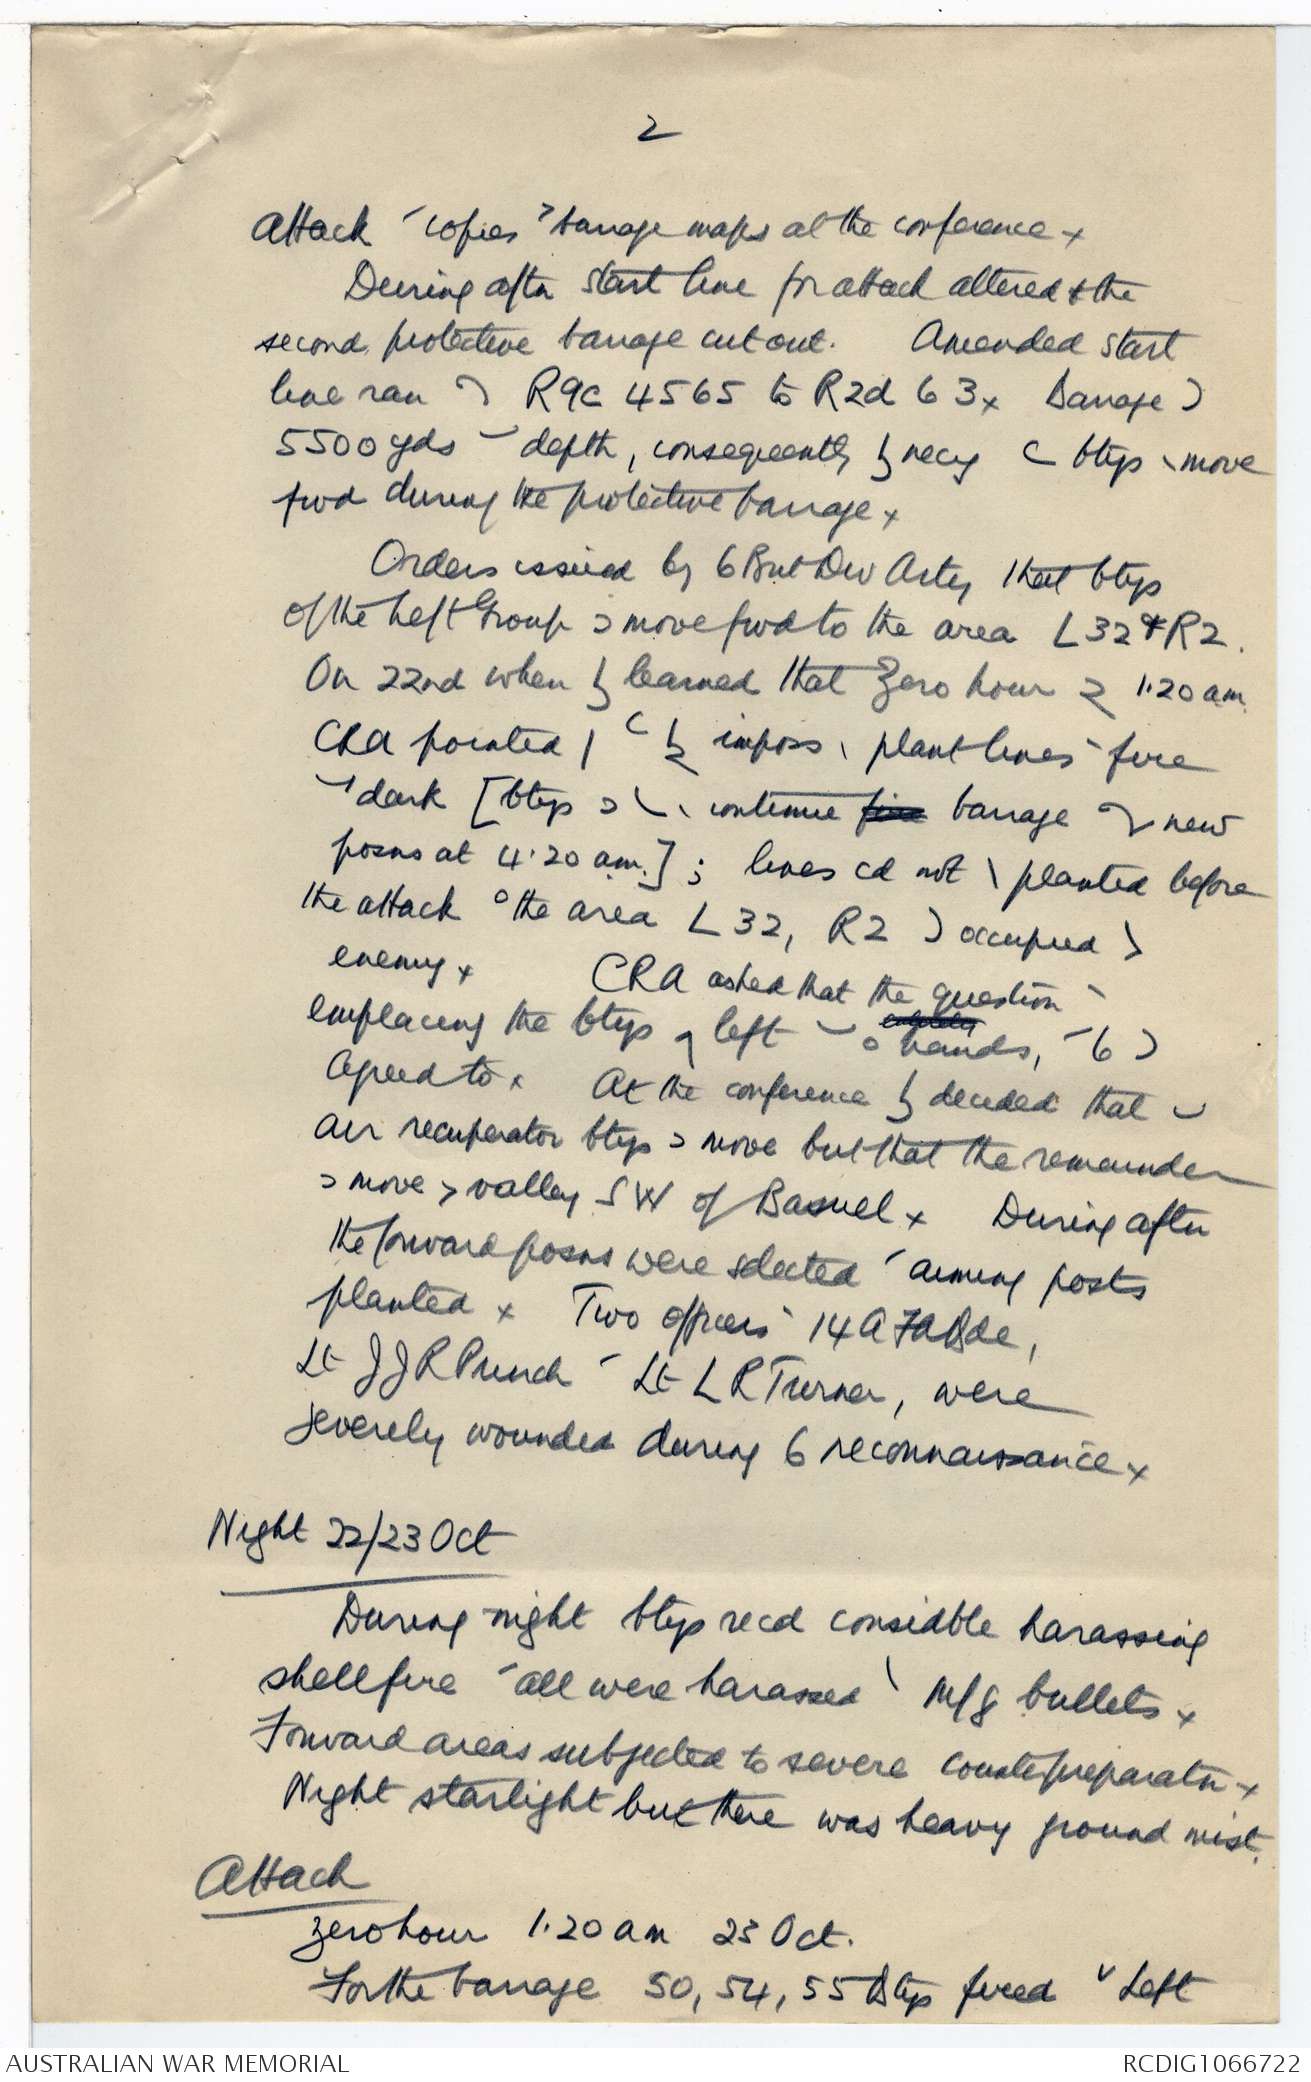 2
Attack copies barrage maps at the conference x
During aftn start line for attack altered & the
second protective barrage cut out. Amended start
line ran R9c 4565 to R2d 63 x Barrage
5500 yds depth, consequently necy btys move
fwd during the protective barrage x
Orders issued by 6 Brit Div Arty that btys
of the Left Group move fwd to the area L32 & R2.
On 22nd when learned that Zero hour 1.20 am
CRA pointed imposs plant lines fire
dark [btys continue fire barrage new
posns at 4.20 am.]; lines cd not planted before
the attack the area L32, R2 occupied
enemy x CRA asked that the question
emplacing the btys left hands, 6
agreed to x At the conference decided that
air recuperator btys move but that the remainder
move valley SW of Bazuel x During aftn
the forward posns were selected aiming posts
planted x Two officers 14 A FA Bde,
Lt J J R Punch Lt L R Turner, were
severely wounded during 6 reconnaissance x
Night 22/23 Oct
During night btys recd considble harassing
shellfire all were harassed M/g bullets x
Forward areas subjected to severe counterpreparatn x
Night starlight but there was heavy ground mist.
Attack
Zero hour 1.20 am 23 Oct.
For the barrage 50, 54, 55 Btys fired Left
AUSTRALIAN WAR MEMORIAL
RCDIG1066722